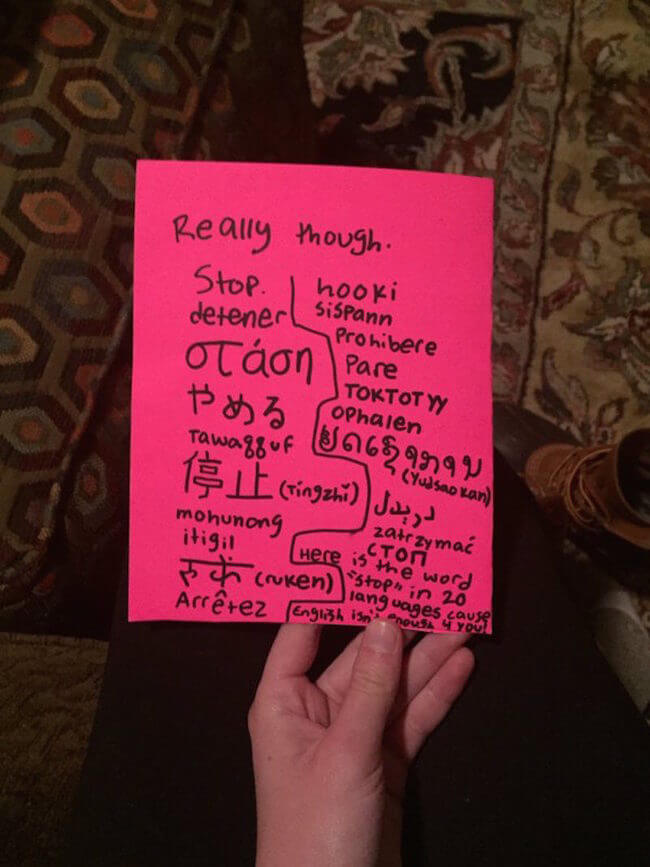 Really though.
Stop.
detener
στάση
やめる
Tawagguf
停止 (Tingzhǐ)
mohunong
itigil
(ruken)
Arrêtez
hooki
sispann
Prohibere
Pare
ТОКТОТУУ
ophalen
(Yudsaokan)
درېدل
zatrzymać
СТОП
Here is the word
"stop" in 20
languages cause
English isn't enough 4 you!